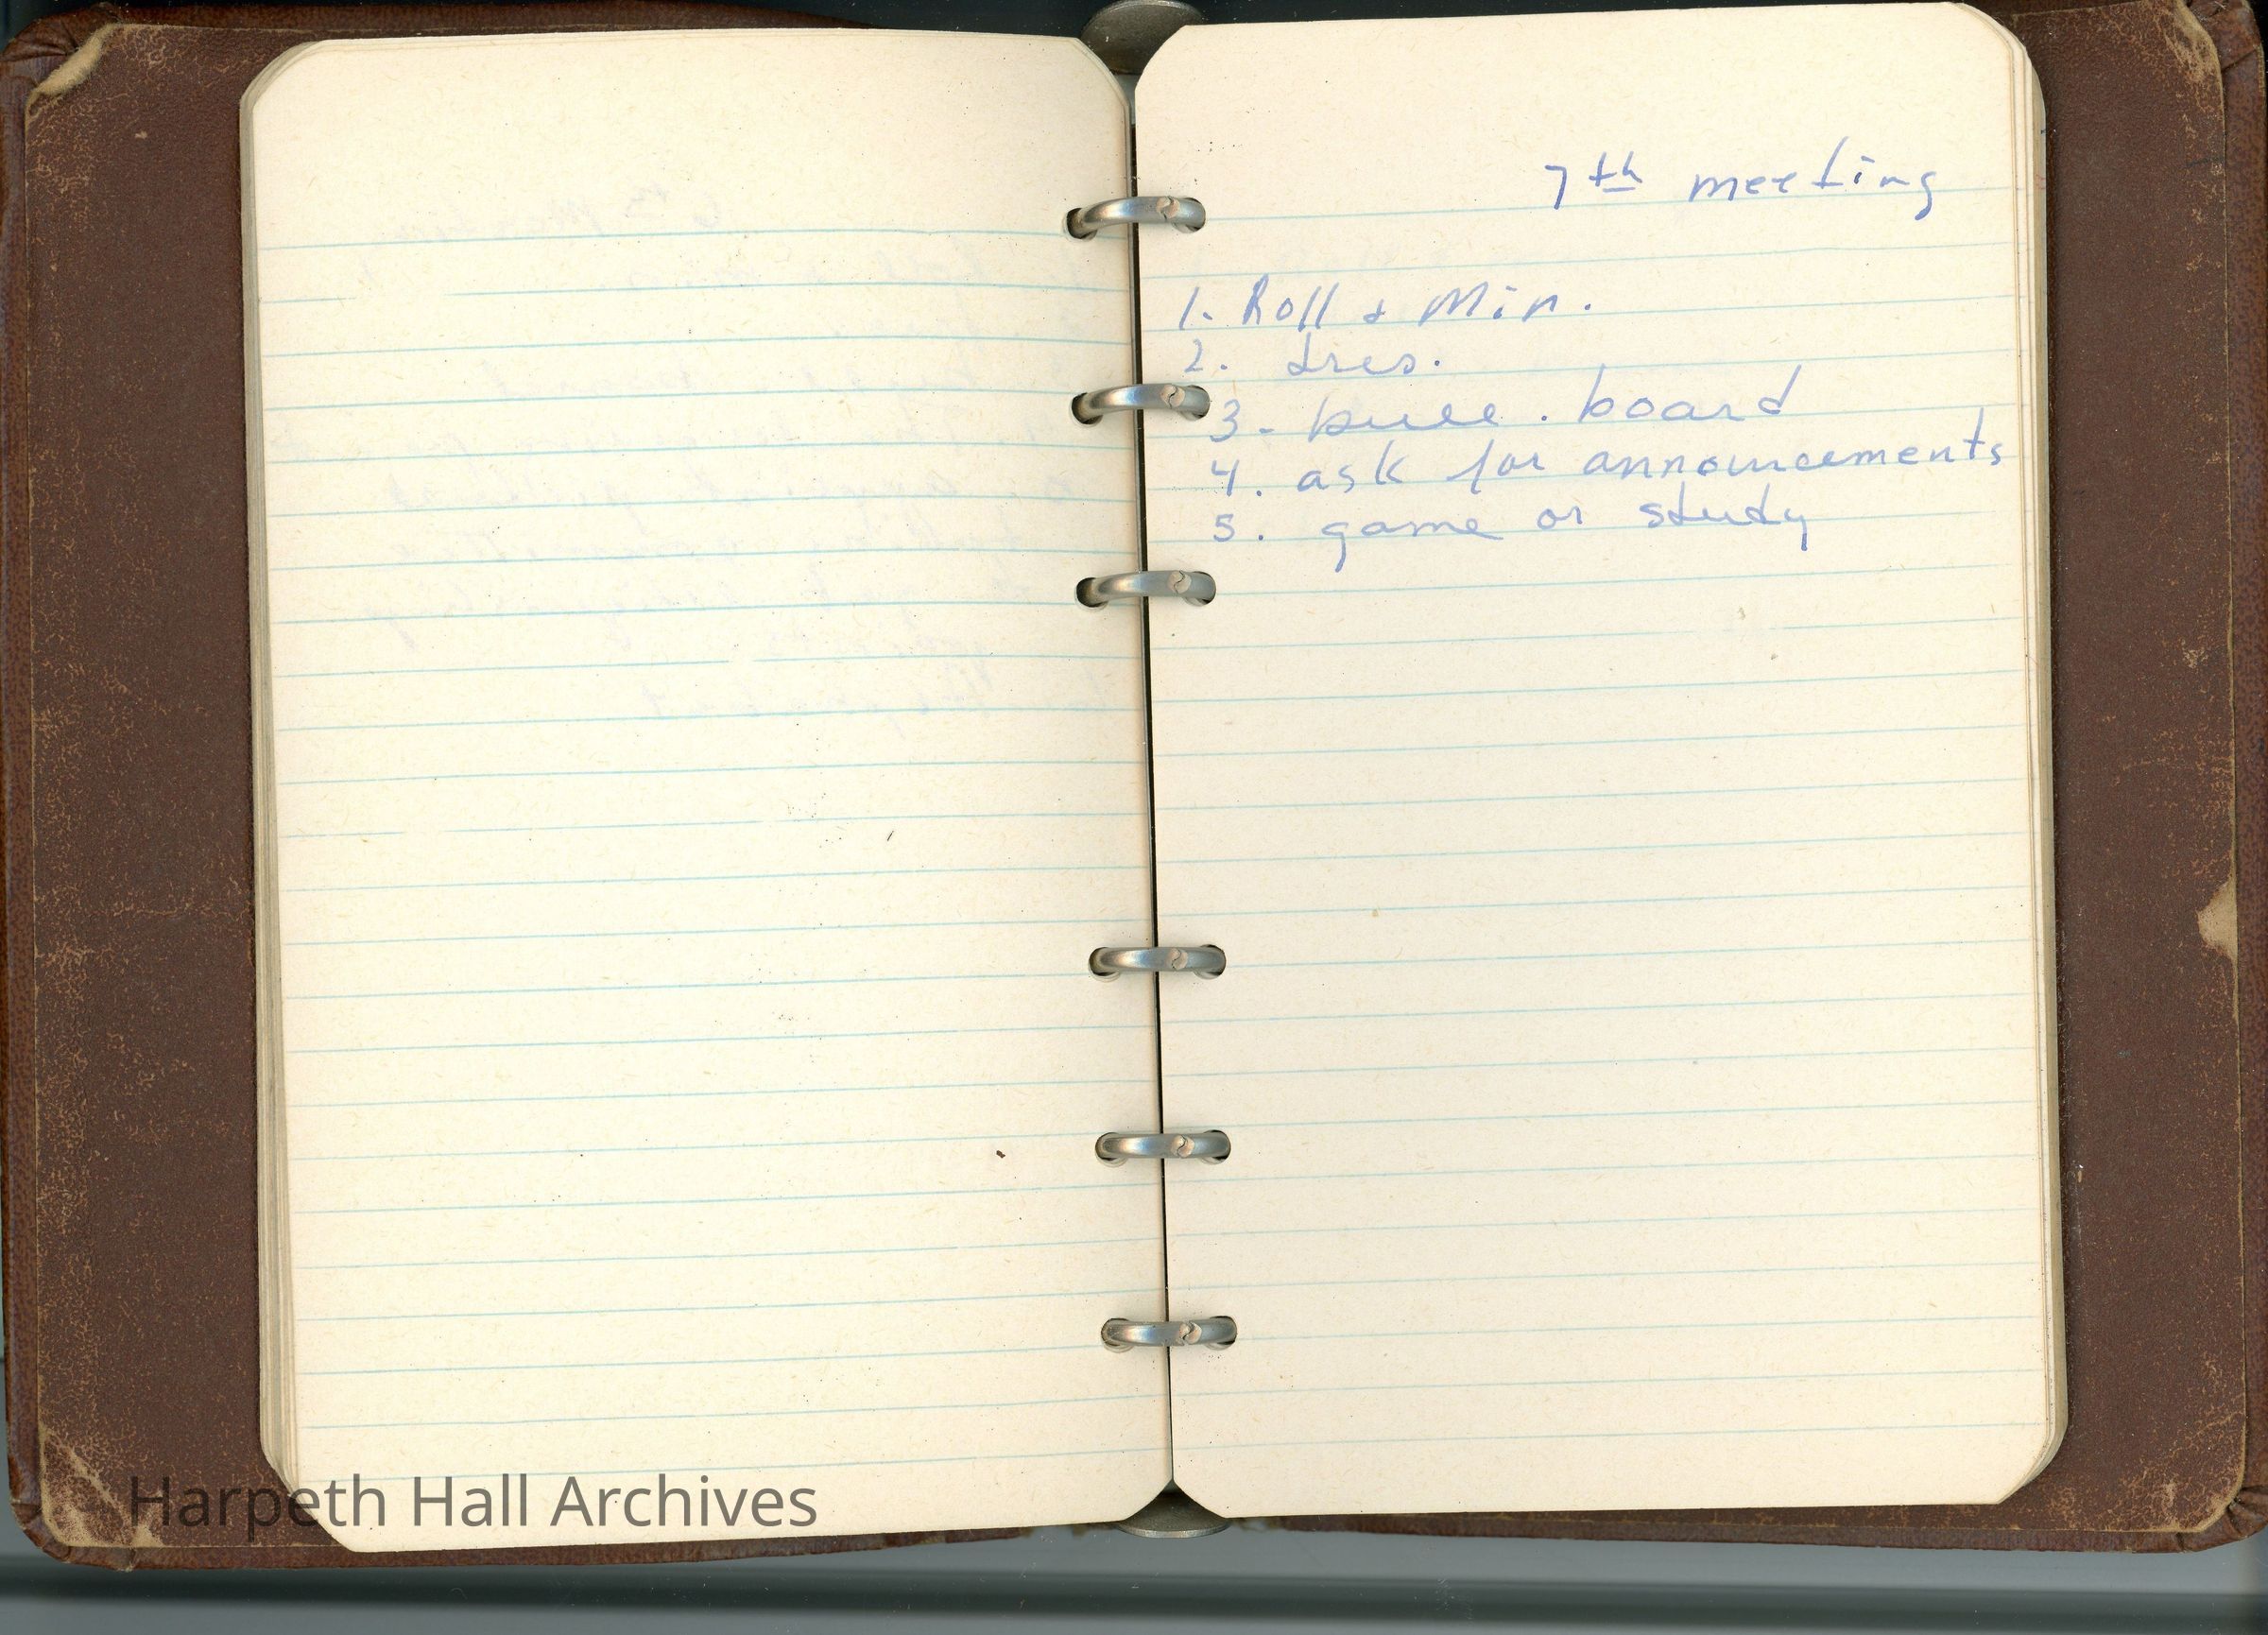 7th meeting
1. Roll & Min.
2. tres.
3. bull. board
4. ask for announcements
5. game or study
Harpeth Hall Archives